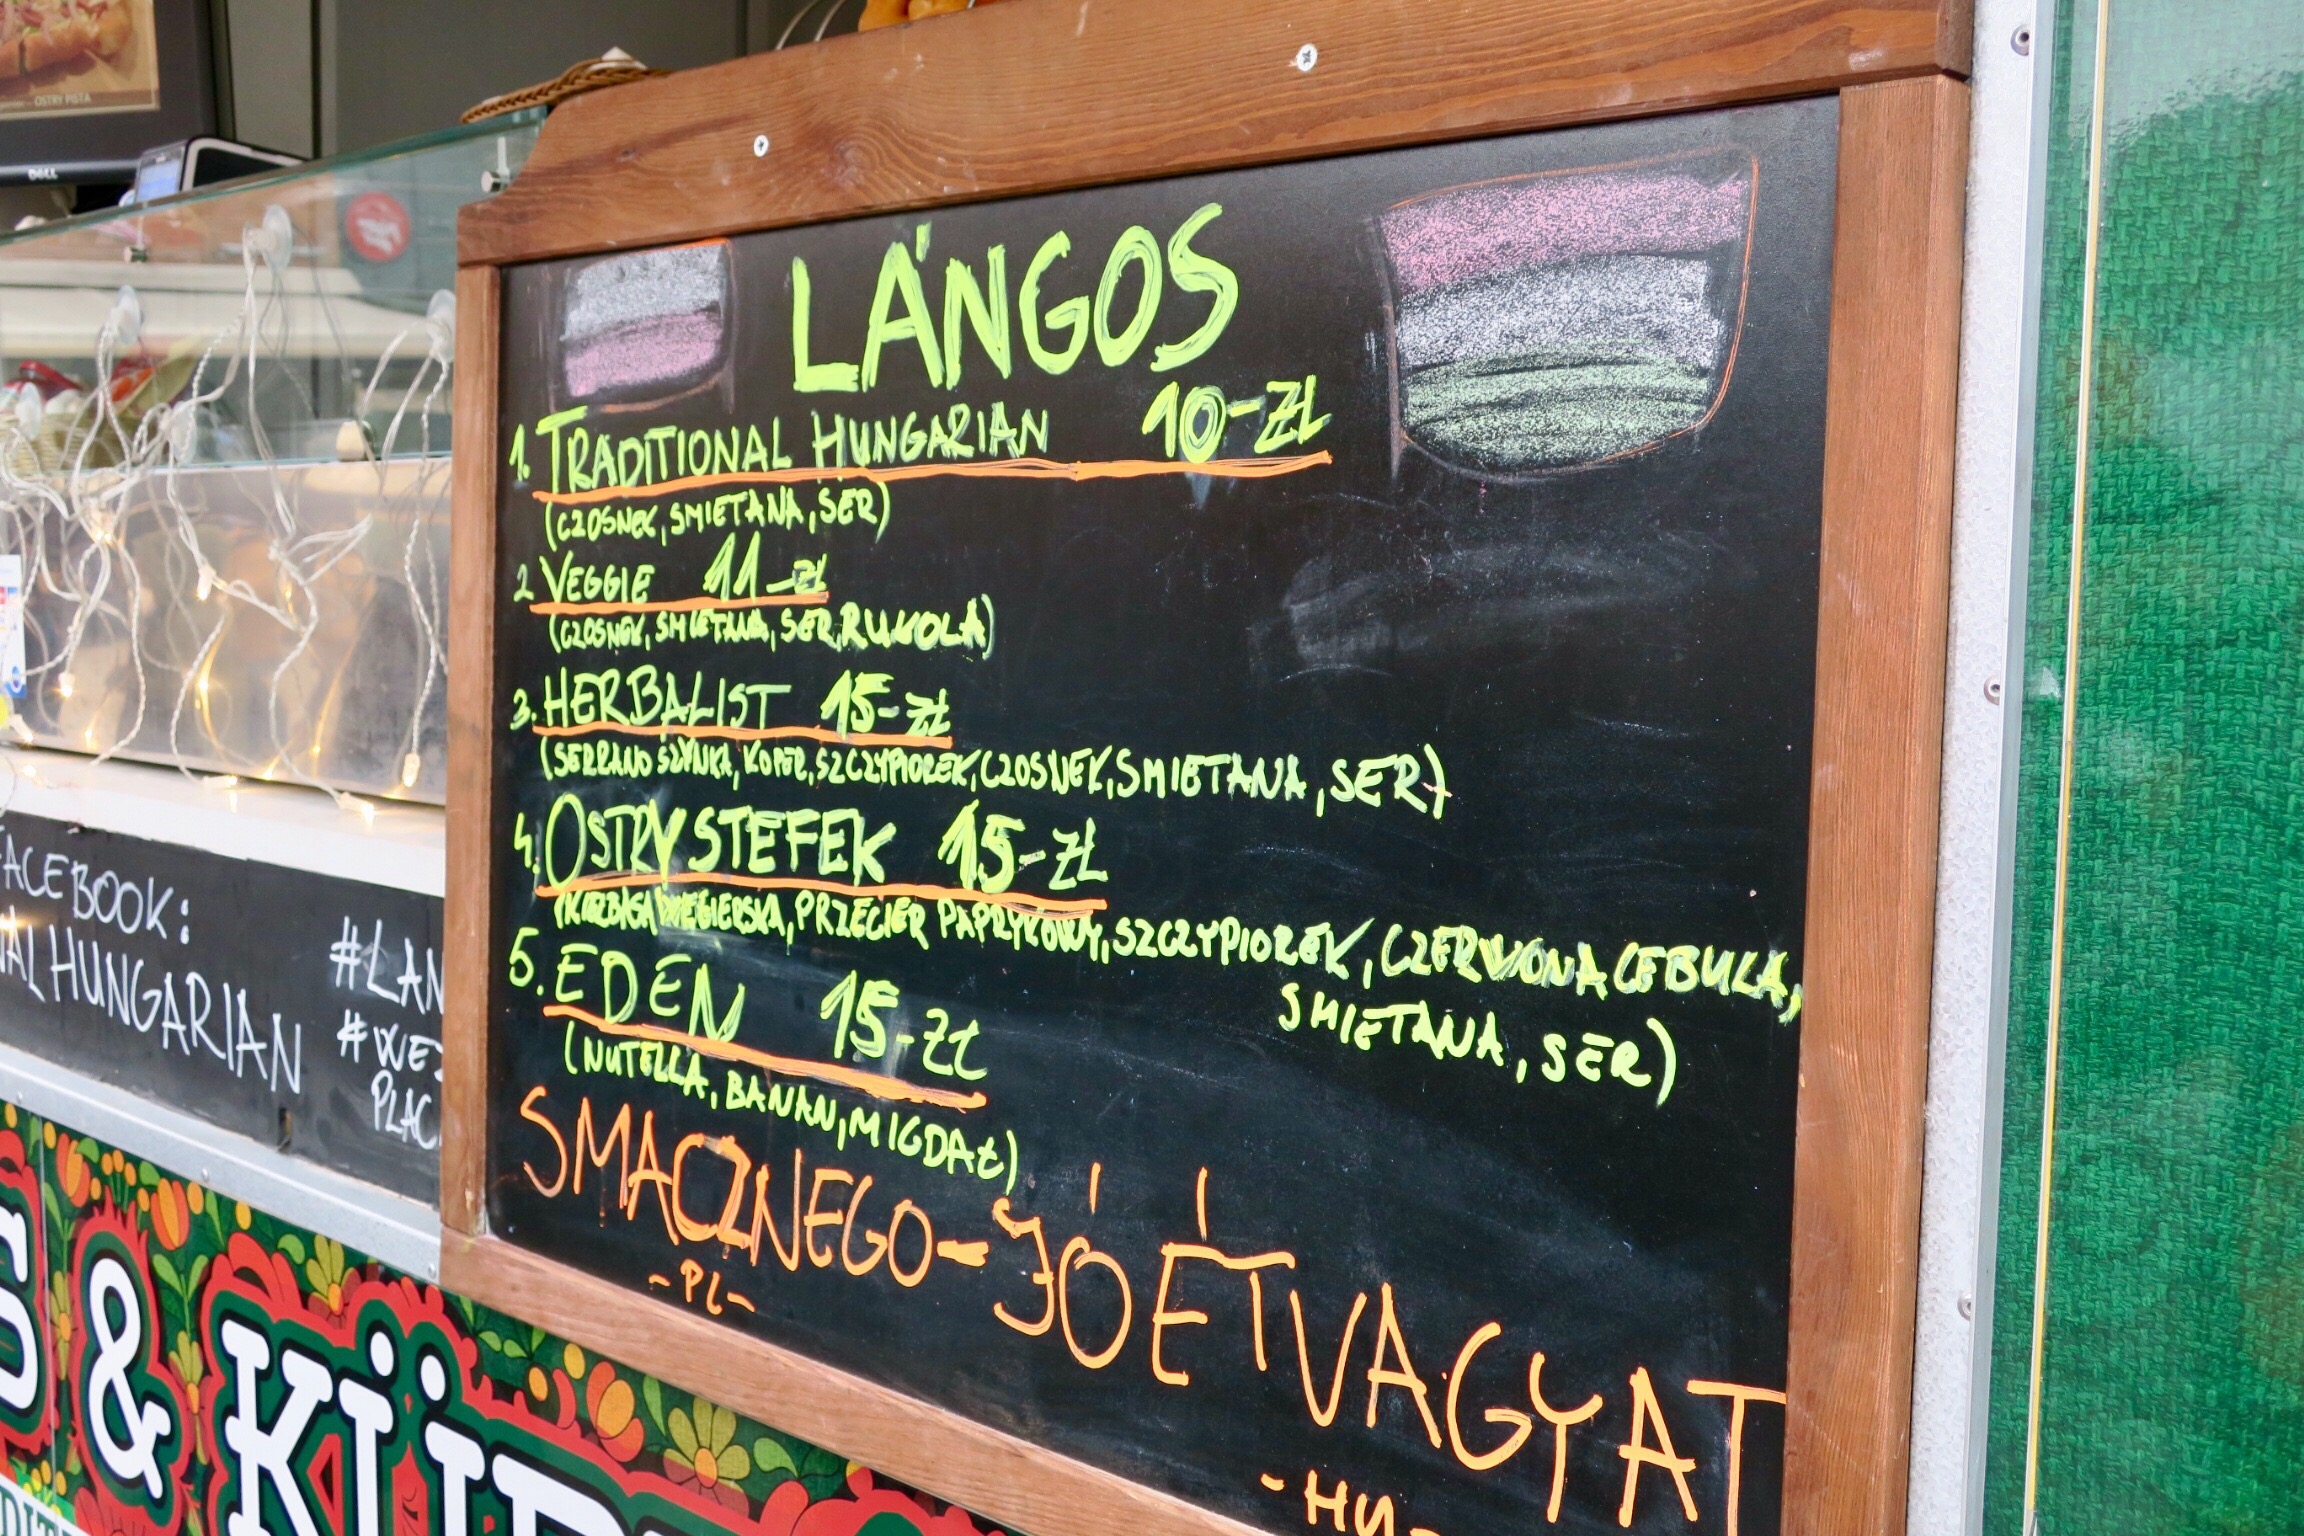 OSTRY PISTA
DELL
LÁNGOS
1. TRADITIONAL HUNGARIAN 10-ZŁ
(CZOSNEK, SMIETANA, SER)
2 VEGGIE 11-ZŁ
(CZOSNEK, SMIETANA, SER, RUKOLA)
3. HERBALIST 15-ZŁ
(SERRANO SZYNKA, KOPER, SZCZYPIOREK, CZOSNEK, SMIETANA, SER)
4. OSTRY STEFEK 15-ZŁ
(KIEŁBASA WEGIERSKA, PRZECIER PAPRYKOWY, SZCZYPIOREK, CZERWONA CEBULA,
SMIETANA, SER)
5. EDEN 15-Zł
(NUTELLA, BANAN, MIGDAł)
SMACZNEGO - JÓ ÉTVAGYAT
-PL-
-HU-
FACEBOOK:
NAL HUNGARIAN
#LAN
#WE
PLAC
S & KÜR